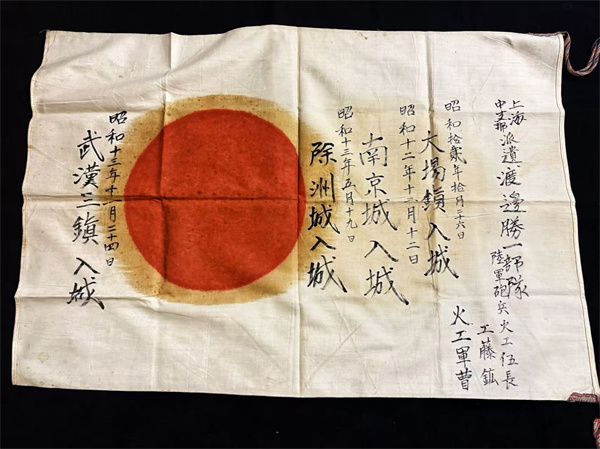 上海
中支那
派遣渡邊勝一部隊
陸軍砲兵火工伍長
工藤鉱
火工軍曹
昭和拾貳年拾月二十六日
大場鎮入城
昭和十二年十二月十二日
南京城入城
昭和十三年五月十九日
除洲城入城
昭和十三年十一月二十四日
武漢三鎮入城